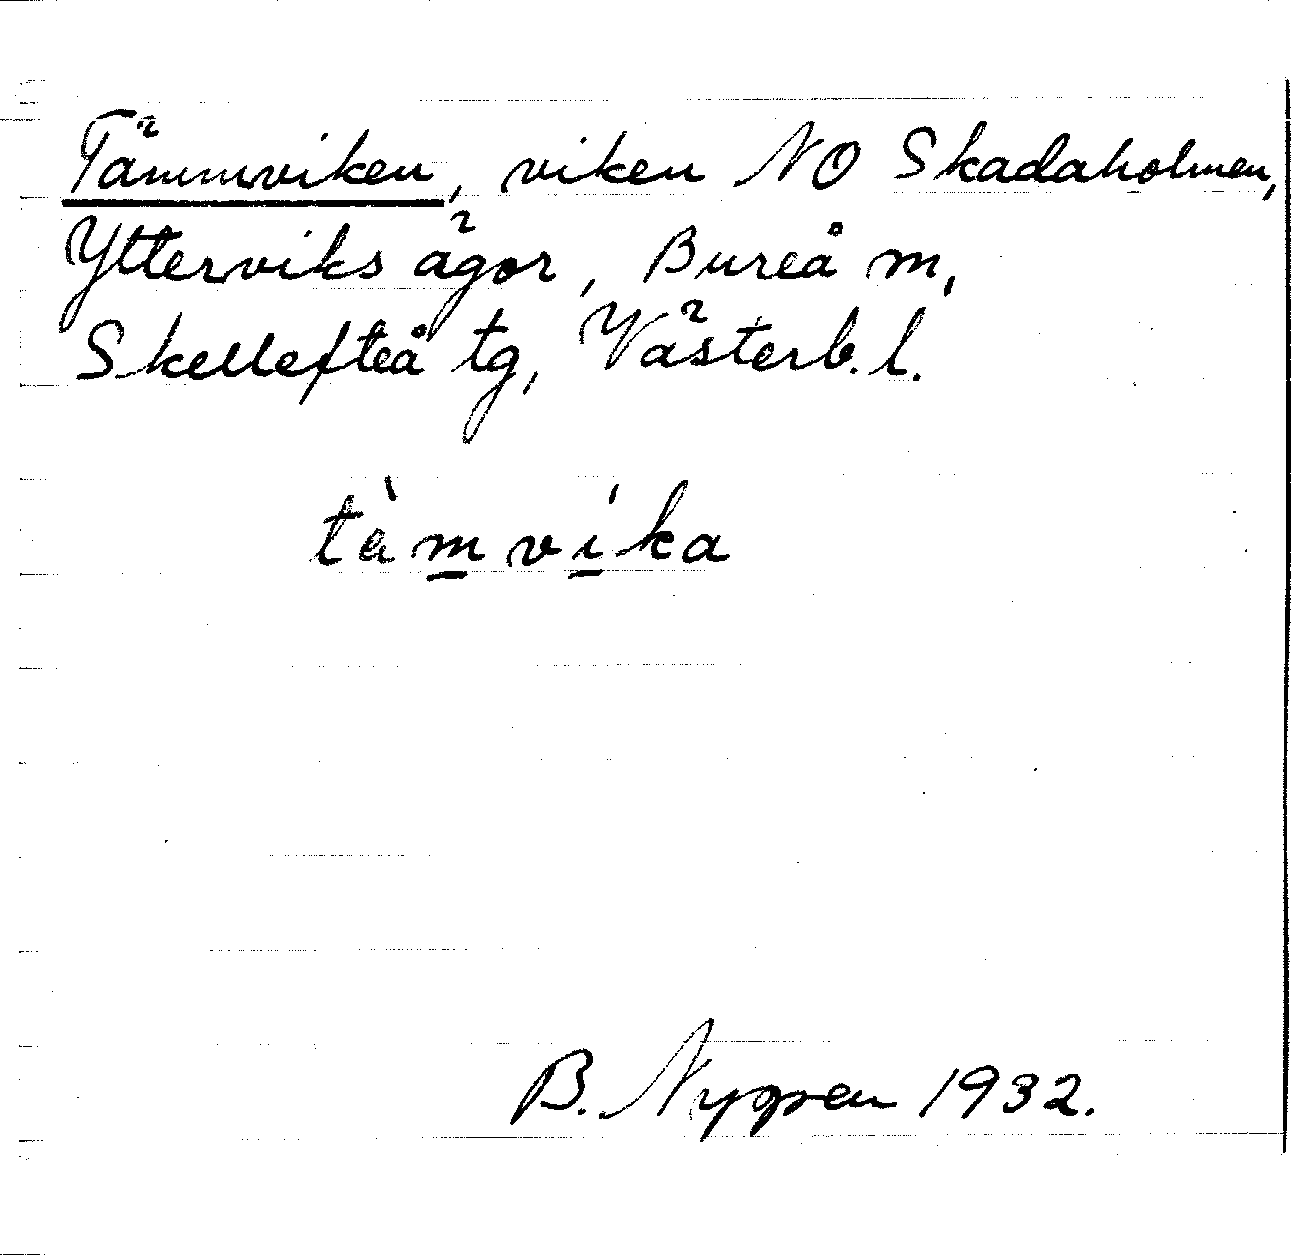 Tämmviken, viken NO Skadaholmen,
Ytterviks ägor, Bureå m,
Skellefteå tg, Västerb. l.
tàmvíka
B. Nygren 1932.